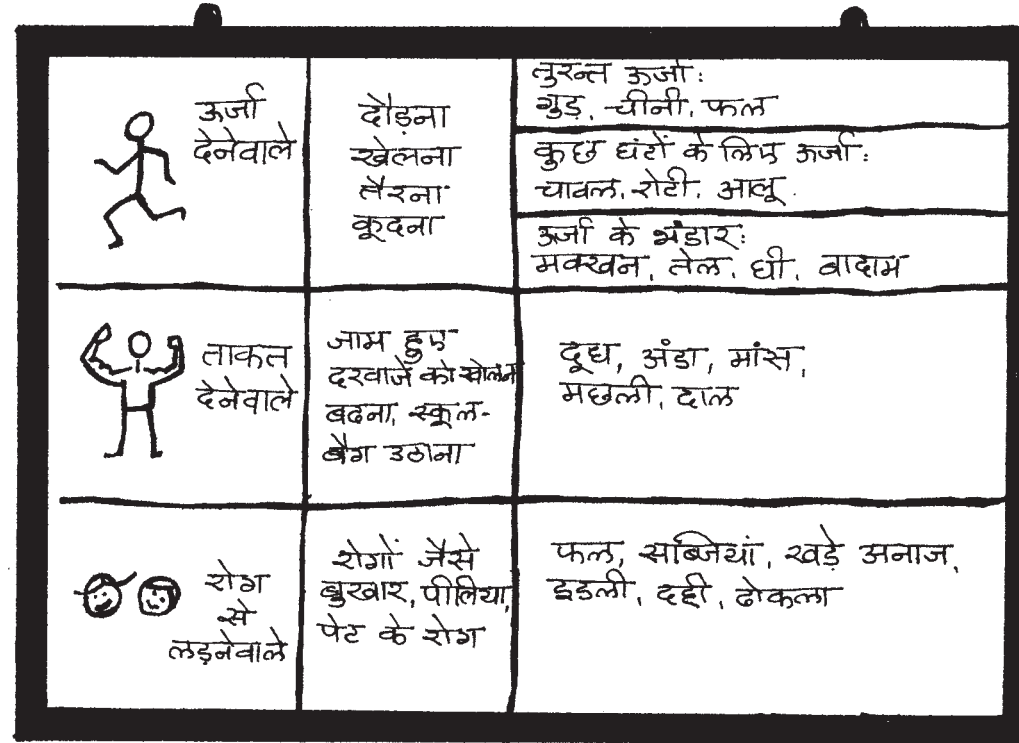 ऊर्जा
देनेवाले
दौड़ना
खेलना
तैरना
कूदना
तुरन्त ऊर्जा:
गुड़, चीनी, फल
कुछ घंटों के लिए ऊर्जा:
चावल, रोटी, आलू
ऊर्जा के भंडार:
मक्खन, तेल, घी, बादाम
ताकत
देनेवाले
जाम हुए
दरवाजे को खोलना
बढना, स्कूल-
बैग उठाना
दूध, अंडा, मांस,
मछली, दाल
रोग
से
लड़नेवाले
रोगों जैसे
बुखार, पीलिया,
पेट के रोग
फल, सब्जियां, खड़े अनाज,
इडली, दही, ढोकला